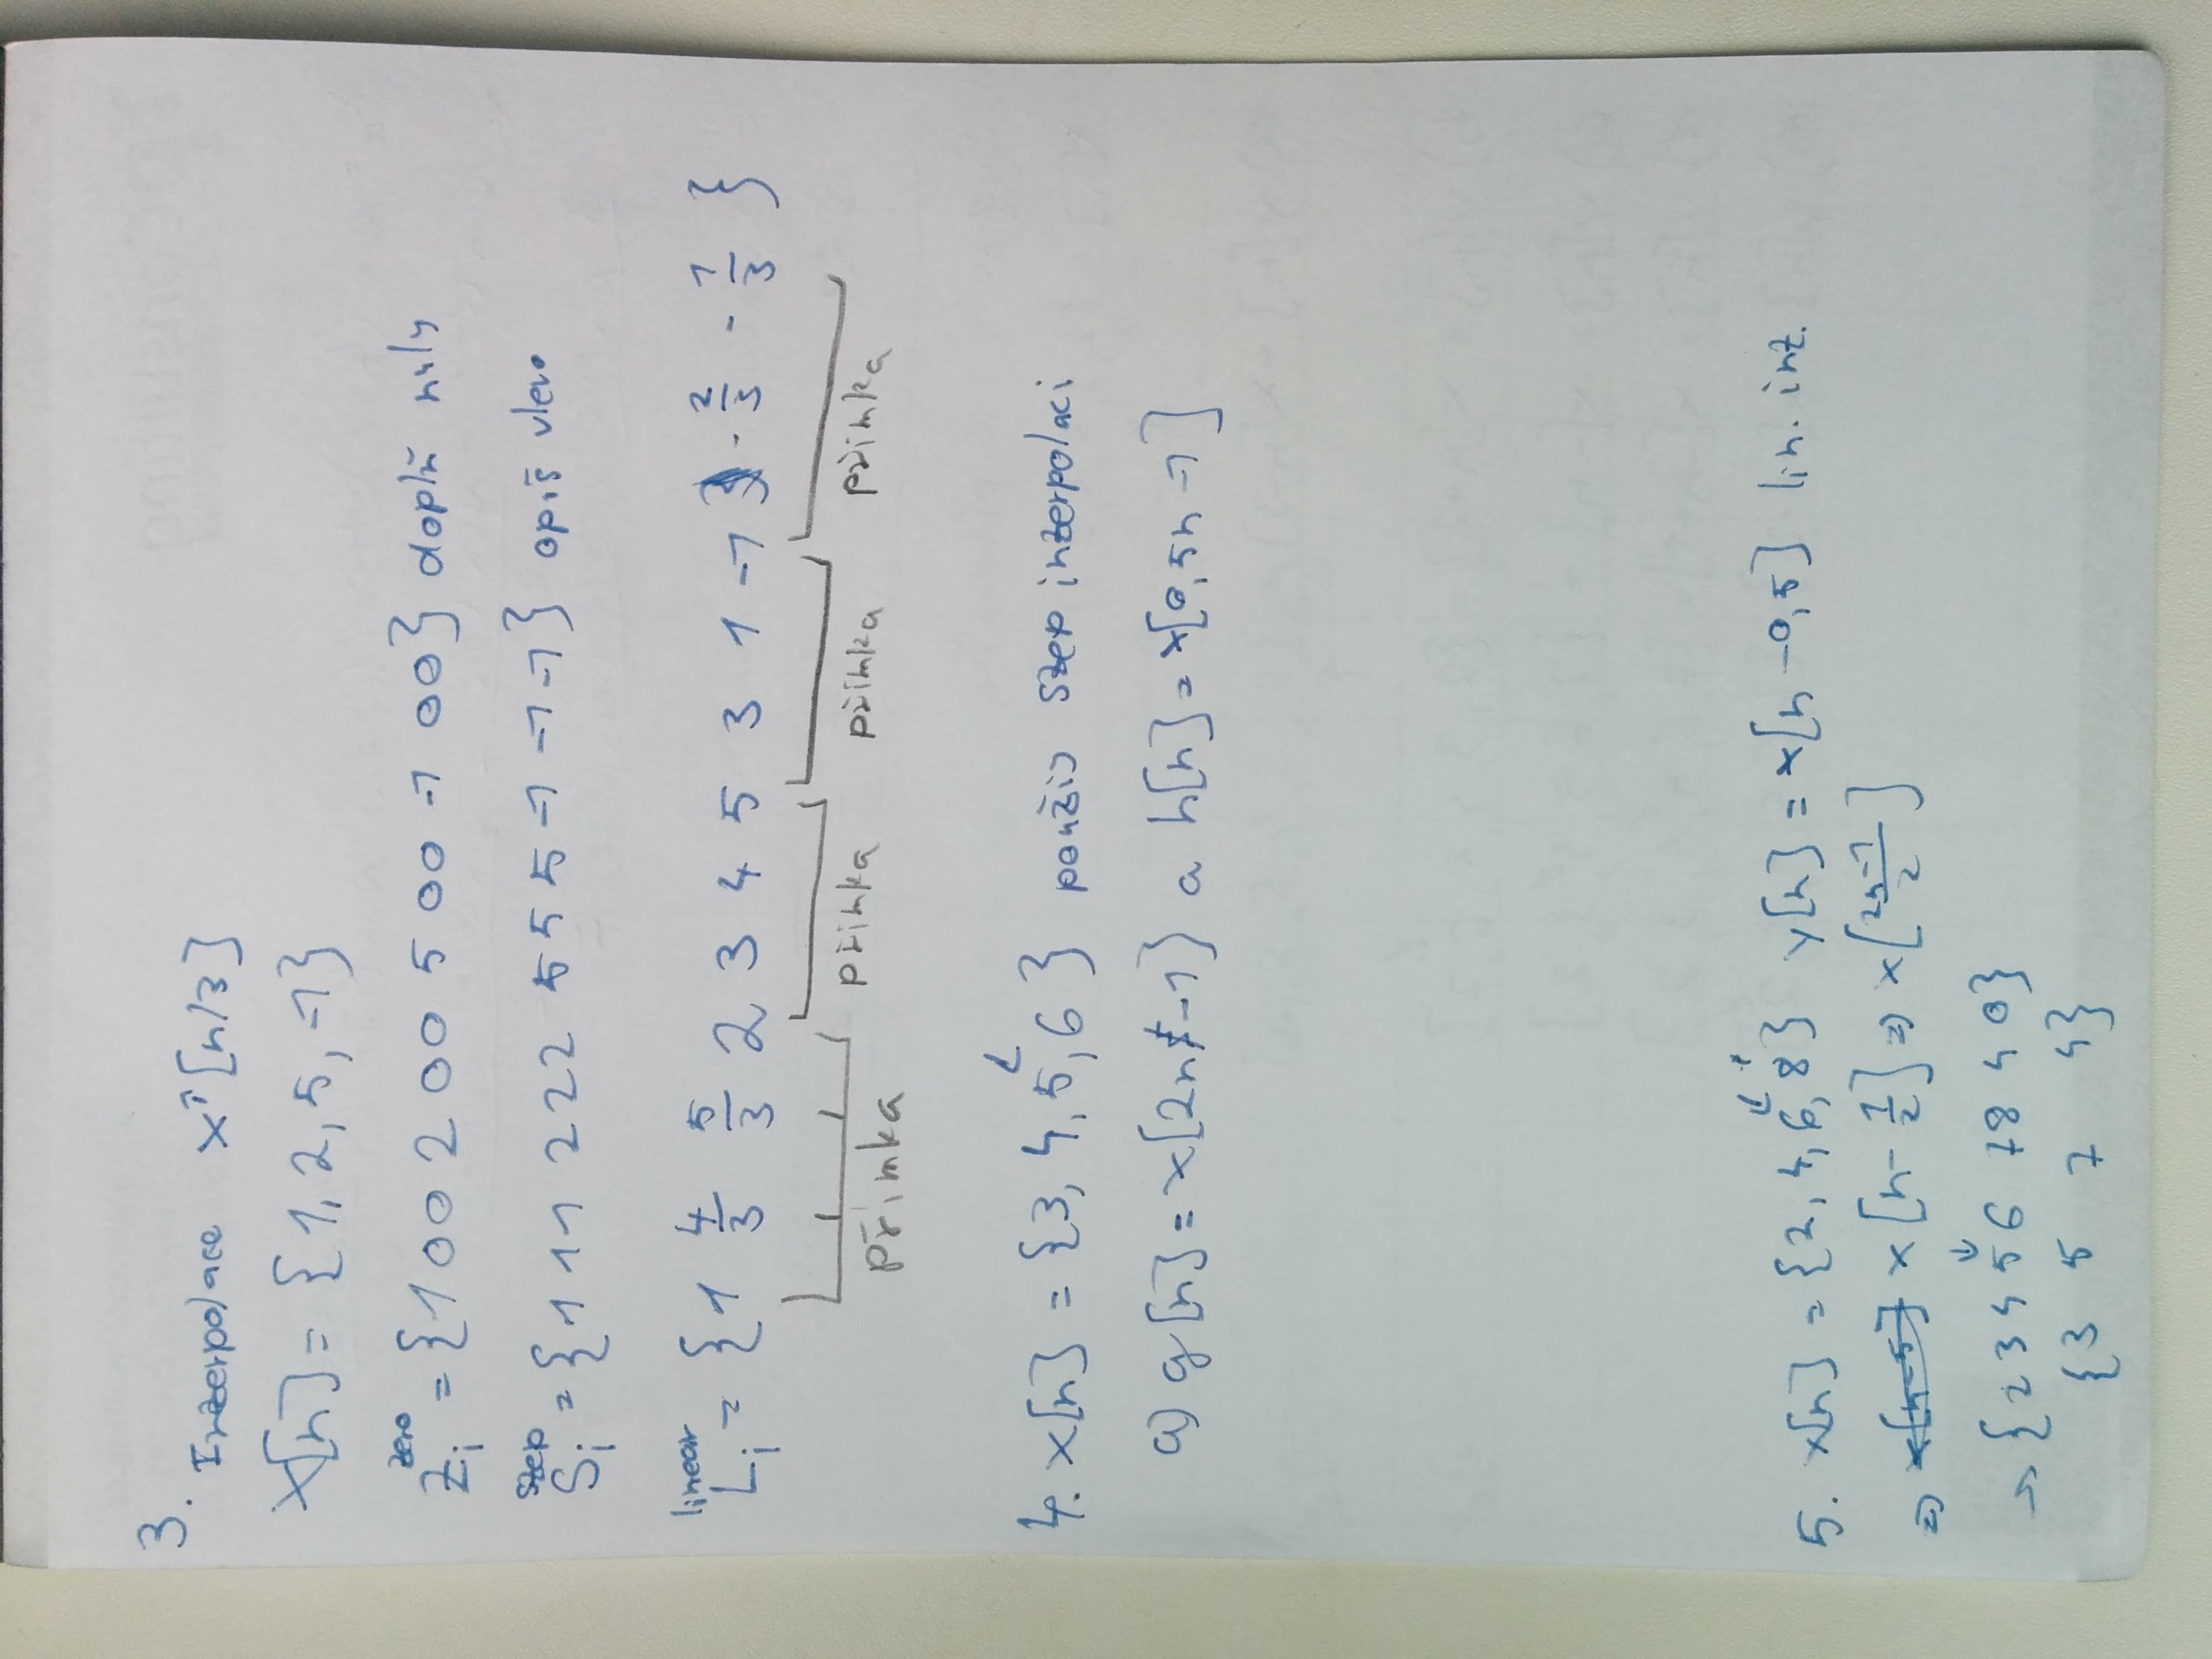 3. Interpolace x[n/3]
x[n] = {1, 2, 5, -1}
zero
Zi = {1 0 0 2 0 0 5 0 0 -1 0 0} doplň nuly
step
Si = {1 1 1 2 2 2 5 5 5 -1 -1 -1} opiš vlevo
linear
Li = {1 4/3 5/3 2 3 4 5 3 1 -1 -2/3 -1/3}
přímka přímka přímka přímka
4. x[n] = {3, 4, 5, 6} použij step interpolaci
a) g[n] = x[2n-1] a h[n] = x[0,5n-1]
5. x[n] = {2, 4, 6, 8} y[n] = x[n-0,5] lin. int.
⇒ x[n-1/2] ⇒ x[2n-1/2]
→ {2 3 4 5 6 7 8 4 0}
{3 5 7 4}